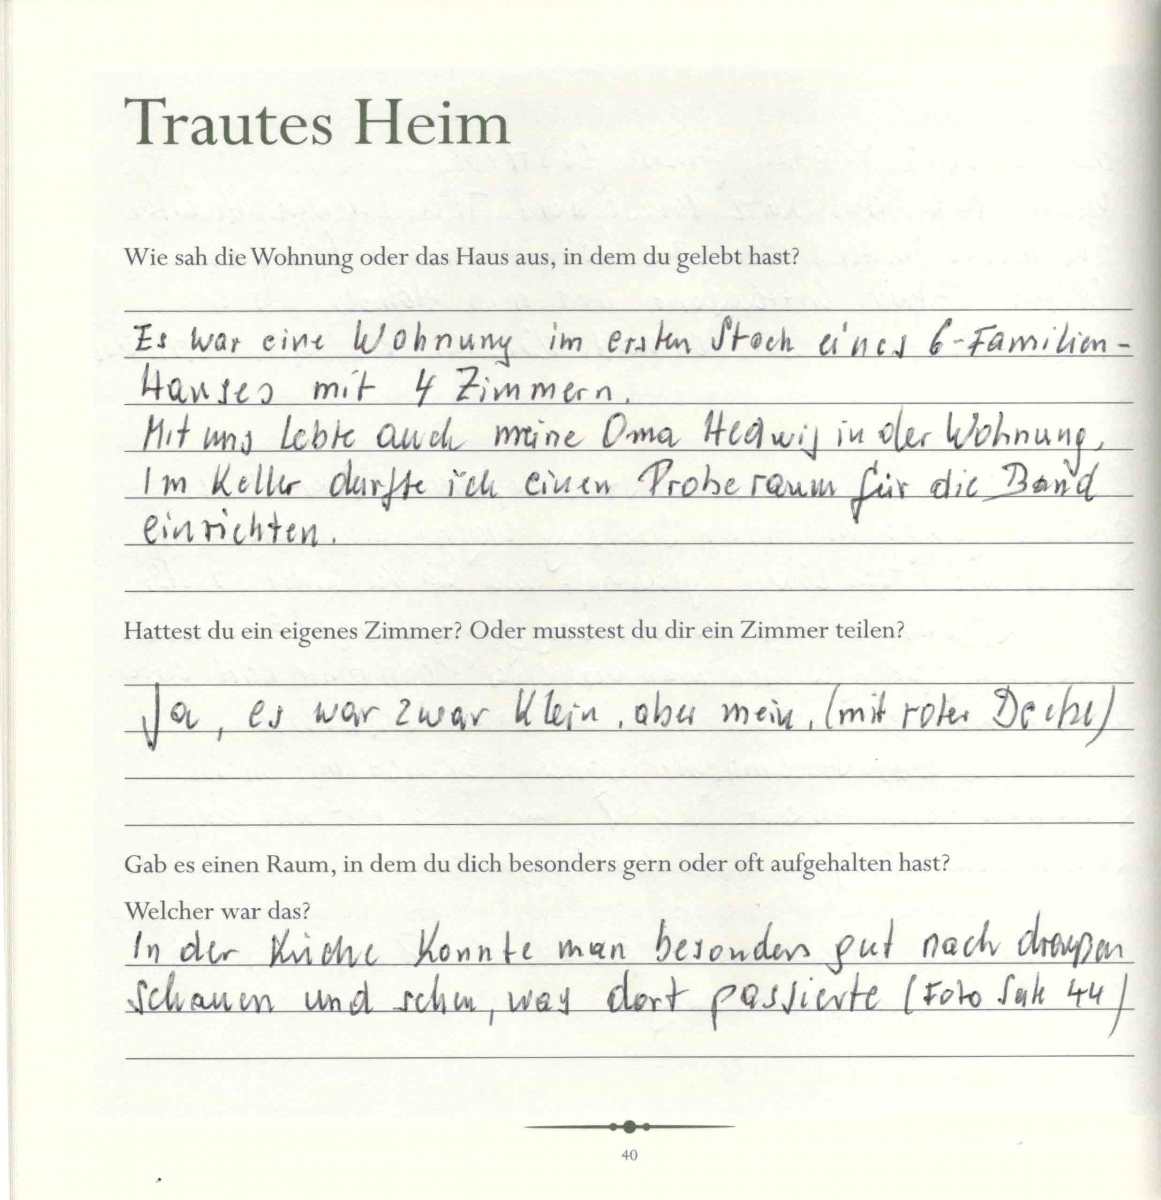 Trautes Heim
Wie sah die Wohnung oder das Haus aus, in dem du gelebt hast?
Es war eine Wohnung im ersten Stock eines 6-Familien-
Hauses mit 4 Zimmern.
Mit uns lebte auch meine Oma Hedwig in der Wohnung,
Im Keller durfte ich einen Proberaum für die Band
einrichten.
Hattest du ein eigenes Zimmer? Oder musstest du dir ein Zimmer teilen?
Ja, es war zwar klein, aber mein, (mit roter Decke)
Gab es einen Raum, in dem du dich besonders gern oder oft aufgehalten hast?
Welcher war das?
In der Küche konnte man besonders gut nach draußen
schauen und sehen, was dort passierte (Foto Seite 44)
40